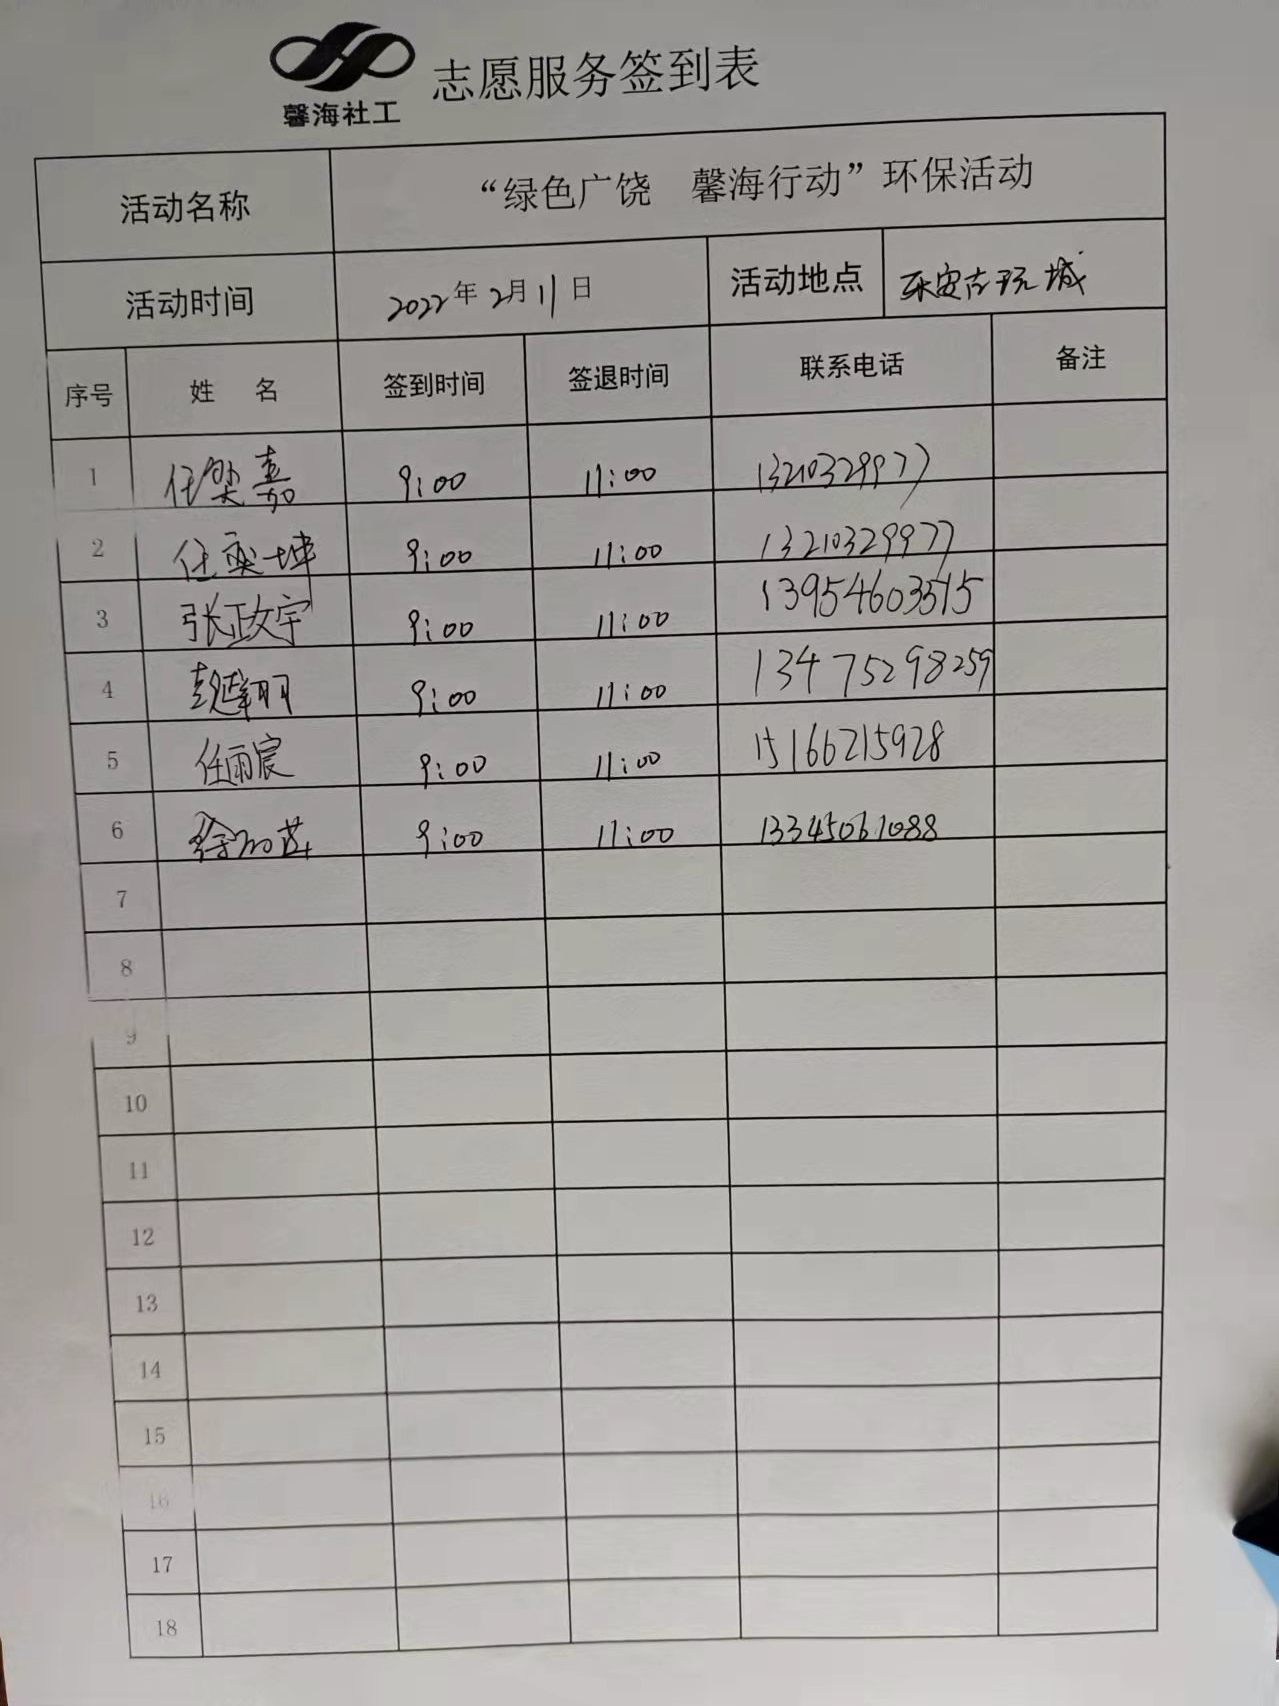 馨海社工
志愿服务签到表
活动名称 “绿色广饶 馨海行动”环保活动
活动时间 2022年2月11日 活动地点 乐安古玩城
序号 姓 名 签到时间 签退时间 联系电话 备注
1 任梁嘉 9:00 11:00 13210329977
2 任奕坤 9:00 11:00 13210329977
3 张政宇 9:00 11:00 13954603515
4 9:00 11:00 13475298259
5 任雨宸 9:00 11:00 15166215928
6 9:00 11:00 13345061088
7
8
9
10
11
12
13
14
15
16
17
18